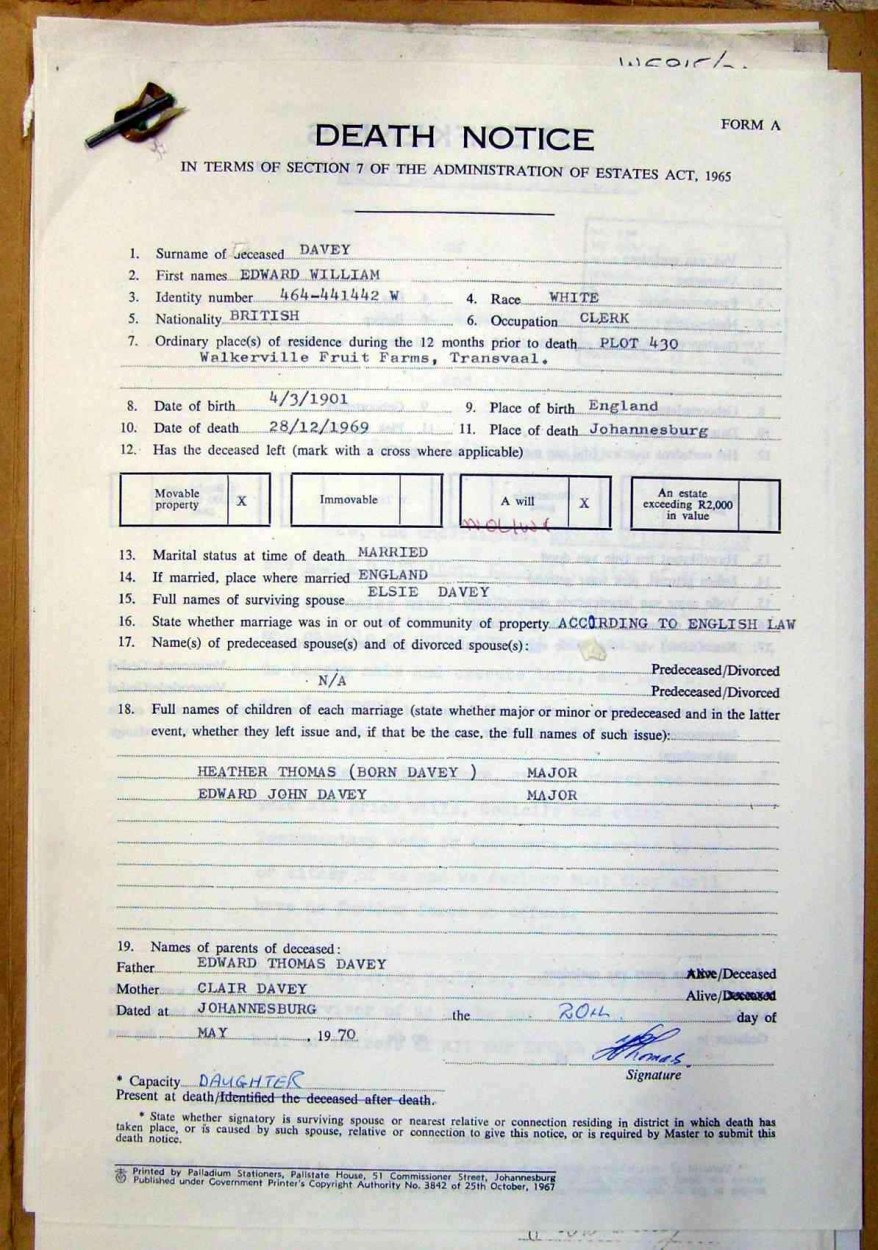 FORM A
DEATH NOTICE
IN TERMS OF SECTION 7 OF THE ADMINISTRATION OF ESTATES ACT, 1965
1. Surname of deceased DAVEY
2. First names EDWARD WILLIAM
3. Identity number 464-441442 W 4. Race WHITE
5. Nationality BRITISH 6. Occupation CLERK
7. Ordinary place(s) of residence during the 12 months prior to death PLOT 430
Walkerville Fruit Farms, Transvaal.
8. Date of birth 4/3/1901 9. Place of birth England
10. Date of death 28/12/1969 11. Place of death Johannesburg
12. Has the deceased left (mark with a cross where applicable)
Movable property X Immovable A will X An estate exceeding R2,000 in value
13. Marital status at time of death MARRIED
14. If married, place where married ENGLAND
15. Full names of surviving spouse ELSIE DAVEY
16. State whether marriage was in or out of community of property ACCORDING TO ENGLISH LAW
17. Name(s) of predeceased spouse(s) and of divorced spouse(s):
Predeceased/Divorced
N/A
Predeceased/Divorced
18. Full names of children of each marriage (state whether major or minor or predeceased and in the latter
event, whether they left issue and, if that be the case, the full names of such issue):
HEATHER THOMAS (BORN DAVEY ) MAJOR
EDWARD JOHN DAVEY MAJOR
19. Names of parents of deceased:
Father EDWARD THOMAS DAVEY Alive/Deceased
Mother CLAIR DAVEY Alive/Deceased
Dated at JOHANNESBURG the 20th day of
MAY , 1970
Thomas
Signature
* Capacity DAUGHTER
Present at death/Identified the deceased after death.
* State whether signatory is surviving spouse or nearest relative or connection residing in district in which death has
taken place, or is caused by such spouse, relative or connection to give this notice, or is required by Master to submit this
death notice.
Printed by Palladium Stationers, Pallstate House, 51 Commissioner Street, Johannesburg
Published under Government Printer's Copyright Authority No. 3842 of 25th October, 1967